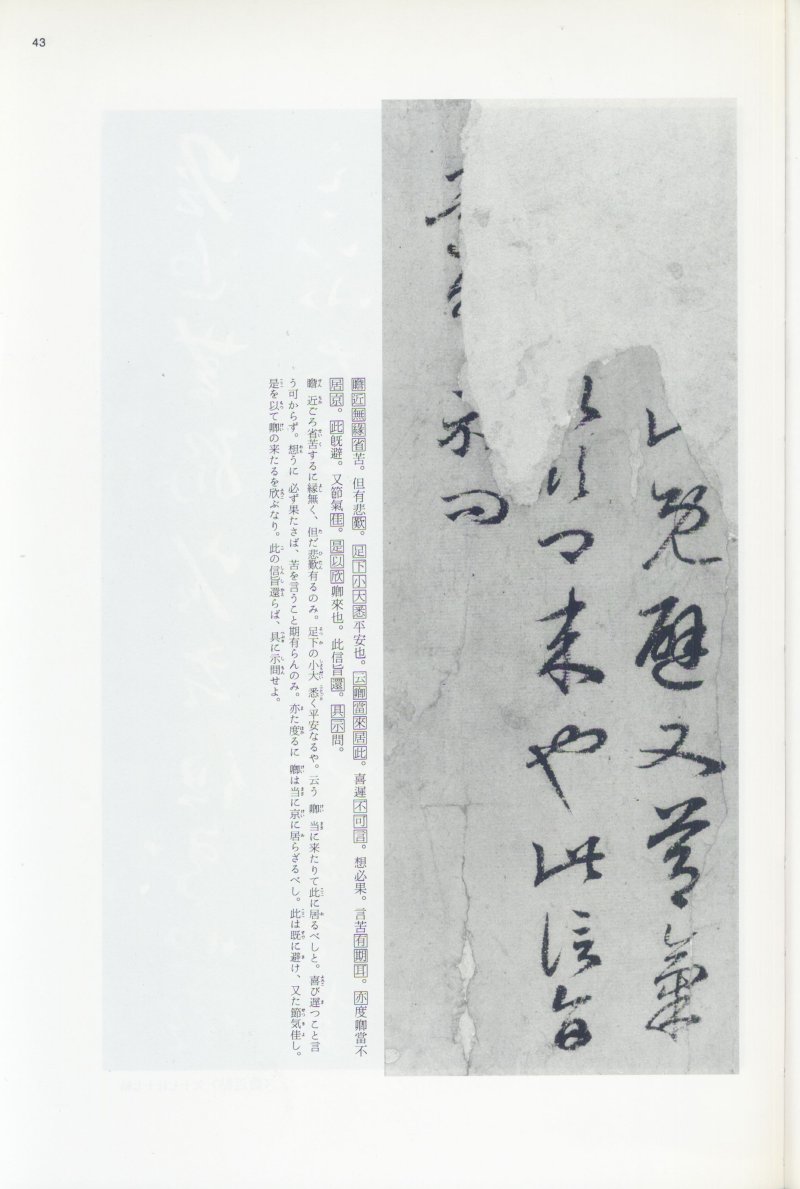 43
既避又節氣
以欣卿来也此信旨
示問
瞻近無緣省苦。但有悲歎。足下小大悉平安也。云卿當來居此。喜遲不可言。想必果。言苦有期耳。亦度卿當不
居京。此既避。又節氣佳。是以欣卿來也。此信旨還。具示問。
瞻 近ごろ省苦するに縁無く、但だ悲歎有るのみ。足下の小大 悉く平安なるや。云う 卿 当に来たりて此に居るべしと。喜び遅つこと言
う可からず。想うに 必ず果たさば、苦を言うこと期有らんのみ。亦た度るに 卿は当に京に居らざるべし。此は既に避け、又た節気佳し。
是を以て卿の来たるを欣ぶなり。此の信旨還らば、具に示問せよ。